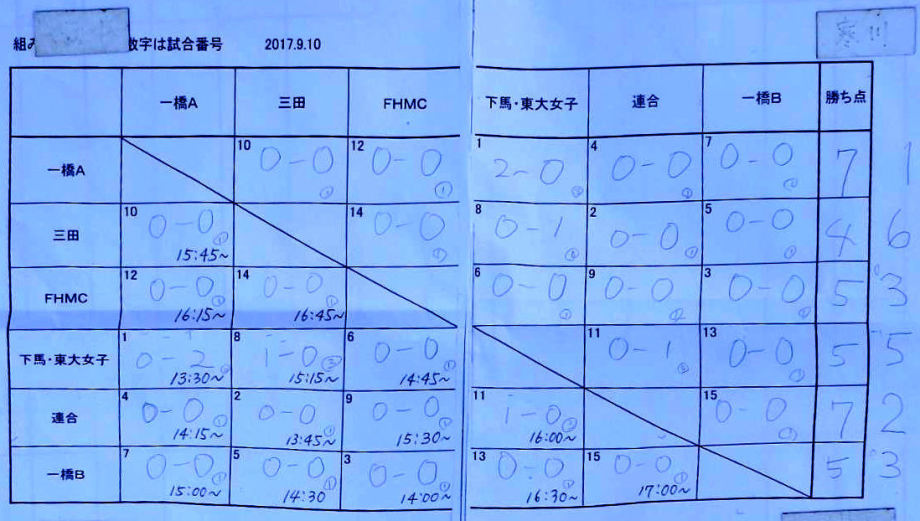 組み 数字は試合番号 2017.9.10 寒川
一橋A 三田 FHMC 下馬・東大女子 連合 一橋B 勝ち点
一橋A 10 0-0 12 0-0 ① 1 2-0 4 0-0 7 0-0 7 1
三田 10 0-0 ① 15:45~ 14 0-0 8 0-1 2 0-0 5 0-0 4 6
FHMC 12 0-0 ① 16:15~ 14 0-0 ① 16:45~ 6 0-0 9 0-0 3 0-0 5 3
下馬・東大女子 1 0-2 13:30~ 8 1-0 15:15~ 6 0-0 ① 14:45~ 11 0-1 13 0-0 5 5
連合 4 0-0 ① 14:15~ 2 0-0 13:45~ 9 0-0 ① 15:30~ 11 1-0 16:00~ 15 0-0 7 2
一橋B 7 0-0 ① 15:00~ 5 0-0 ① 14:30 3 0-0 ① 14:00~ 13 0-0 ① 16:30~ 15 0-0 ① 17:00~ 5 3